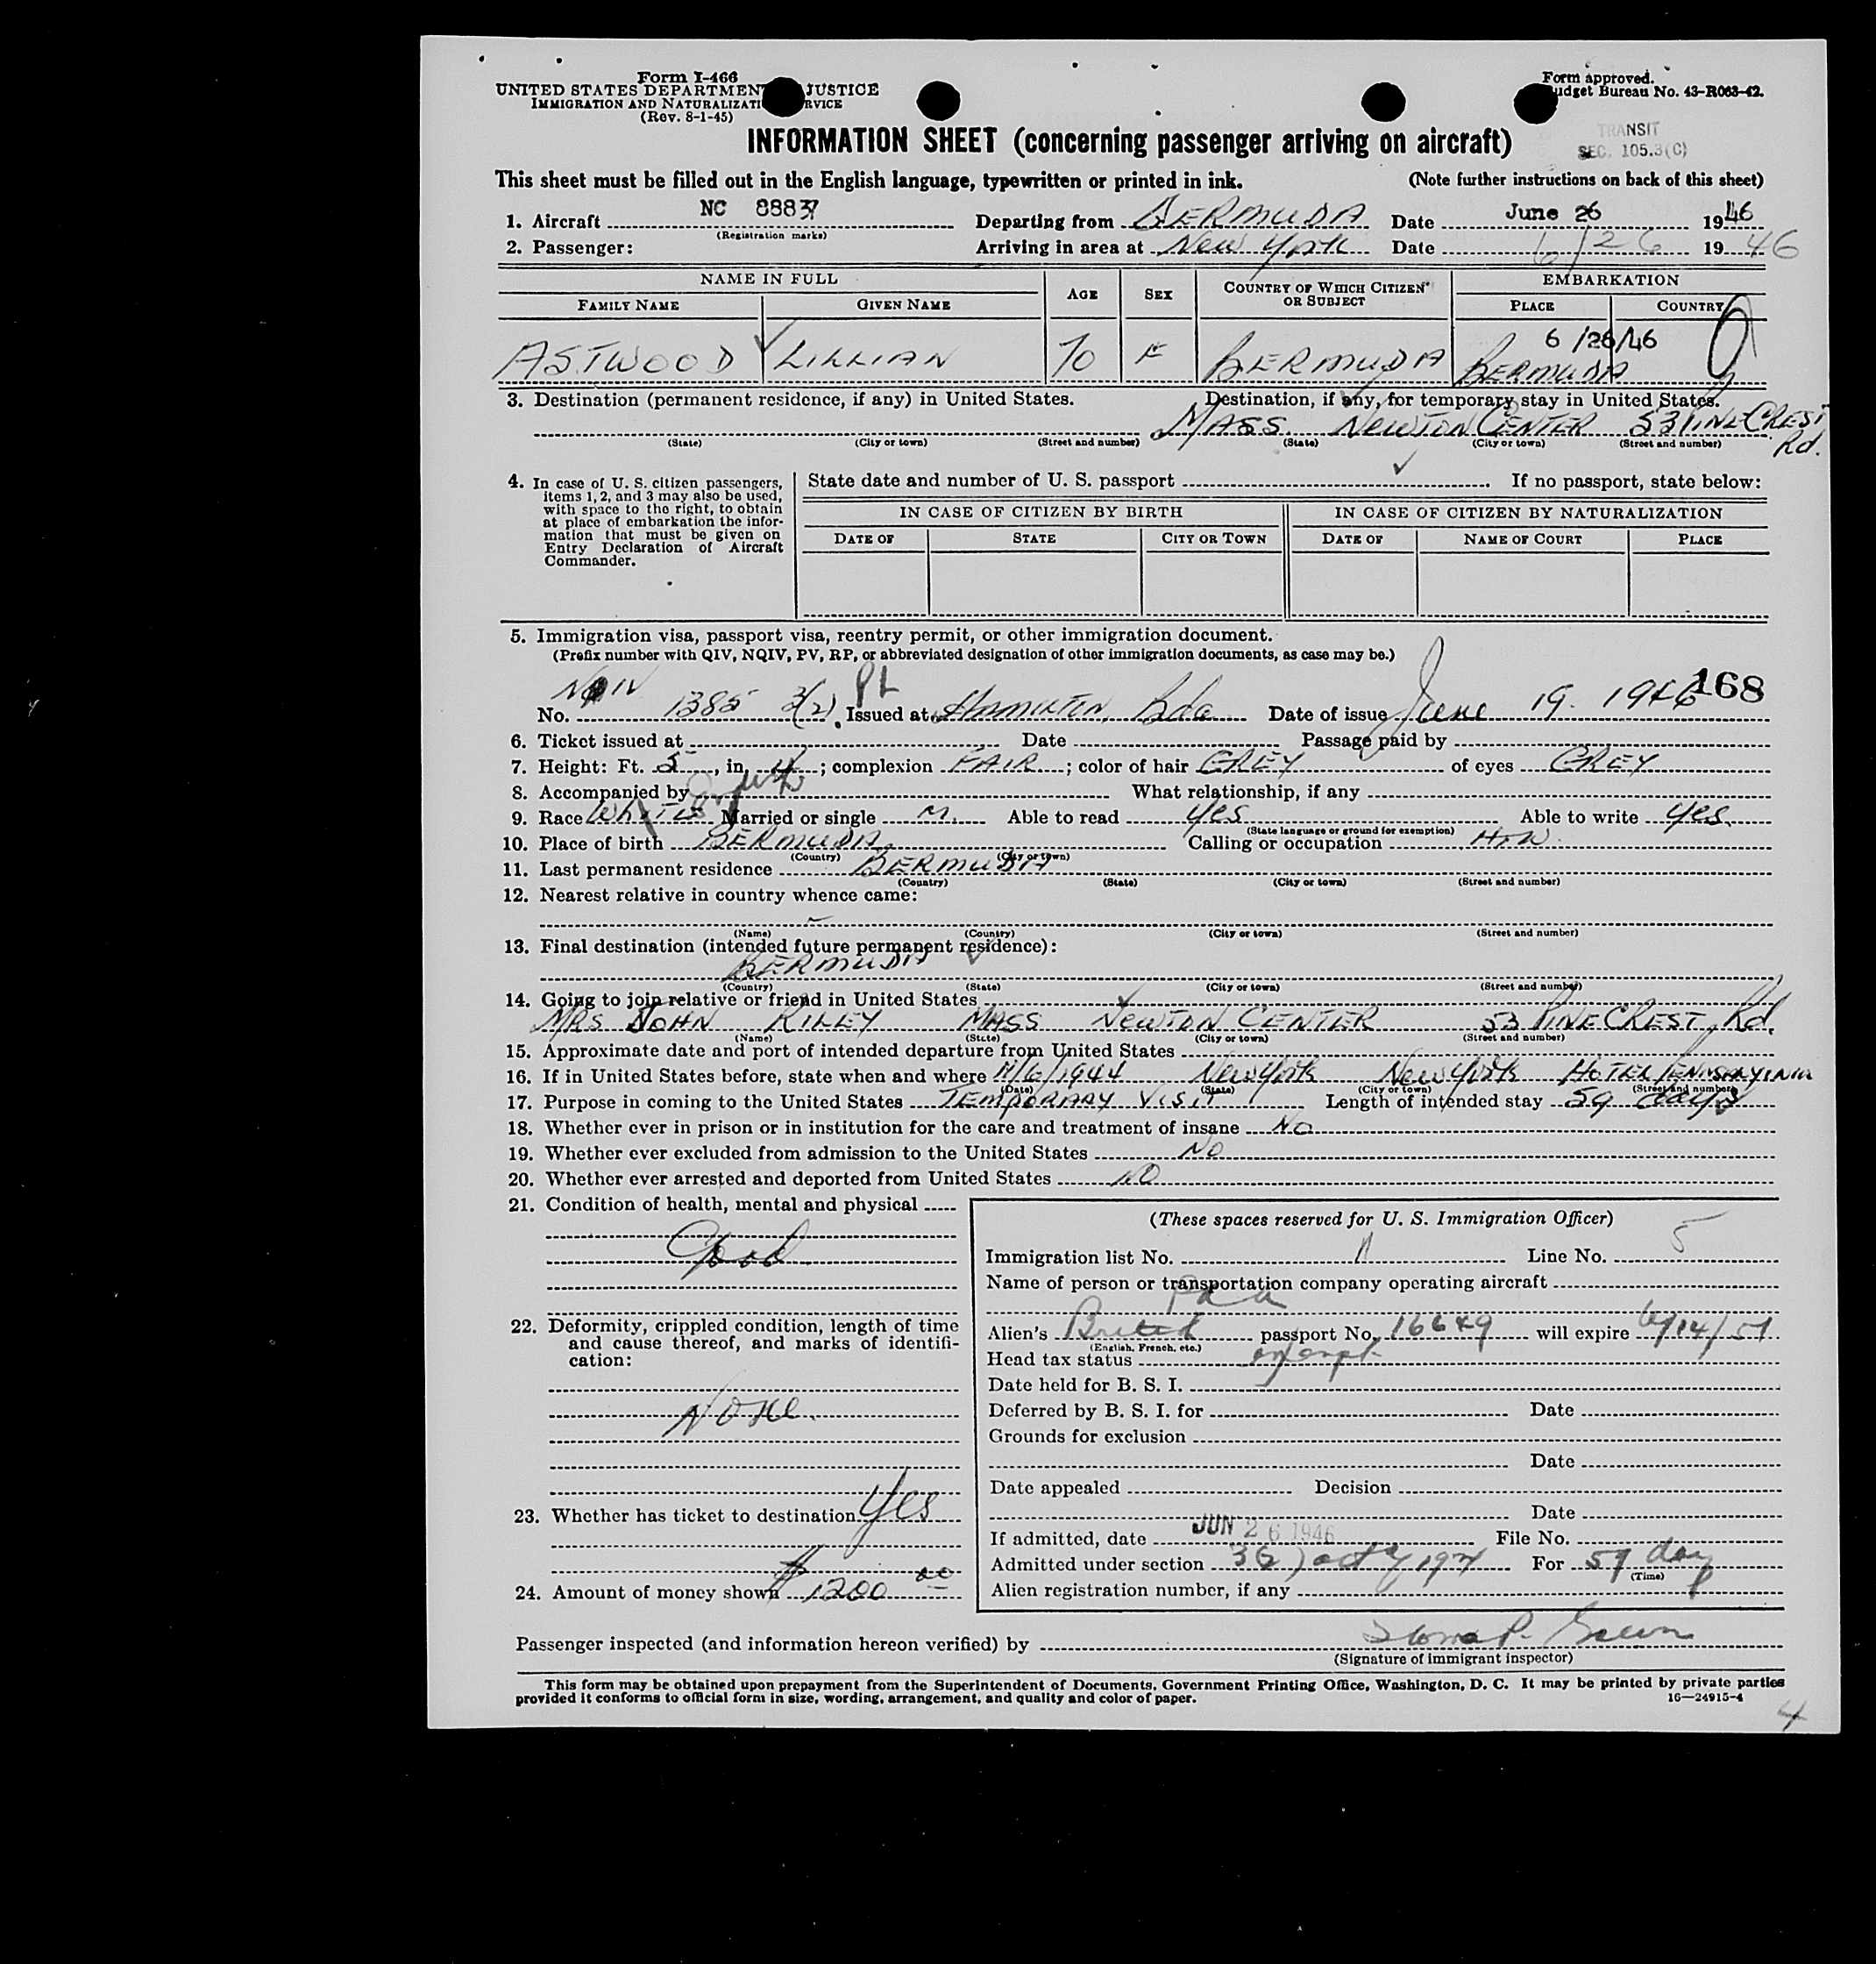 Form I-466
UNITED STATES DEPARTMENT JUSTICE
IMMIGRATION AND NATURALIZATI RVICE
(Rev. 8-1-45)
Form approved.
udget Bureau No. 43-R063-42.
INFORMATION SHEET (concerning passenger arriving on aircraft)
TRANSIT
SEC. 105.3(C)
This sheet must be filled out in the English language, typewritten or printed in ink. (Note further instructions on back of this sheet)
1. Aircraft NC 88837 Departing from BERMUDA Date June 26 1946
(Registration marks)
2. Passenger: Arriving in area at New York Date 6/26 1946
NAME IN FULL AGE SEX COUNTRY OF WHICH CITIZEN OR SUBJECT EMBARKATION
FAMILY NAME GIVEN NAME PLACE COUNTRY
6/26/46
ASTWOOD LILLIAN 70 F BERMUDA BERMUDA
3. Destination (permanent residence, if any) in United States. Destination, if any, for temporary stay in United States.
MASS. NEWTON CENTER 53 PINE CREST Rd.
(State) (City or town) (Street and number) (State) (City or town) (Street and number)
4. In case of U. S. citizen passengers, items 1, 2, and 3 may also be used, with space to the right, to obtain at place of embarkation the information that must be given on Entry Declaration of Aircraft Commander.
State date and number of U. S. passport If no passport, state below:
IN CASE OF CITIZEN BY BIRTH IN CASE OF CITIZEN BY NATURALIZATION
DATE OF STATE CITY OR TOWN DATE OF NAME OF COURT PLACE
5. Immigration visa, passport visa, reentry permit, or other immigration document.
(Prefix number with QIV, NQIV, PV, RP, or abbreviated designation of other immigration documents, as case may be.)
168
No. 1385 3(2) PL Issued at HAMILTON, Bda Date of issue June 19. 1946
6. Ticket issued at Date Passage paid by
7. Height: Ft. 5, in. 4; complexion FAIR; color of hair GREY of eyes GREY
8. Accompanied by What relationship, if any
9. Race White English Married or single M. Able to read yes Able to write yes.
(State language or ground for exemption)
10. Place of birth BERMUDA Calling or occupation H.W.
(Country) (City or town)
11. Last permanent residence BERMUDA
(Country) (State) (City or town) (Street and number)
12. Nearest relative in country whence came:
(Name) (Country) (City or town) (Street and number)
13. Final destination (intended future permanent residence):
BERMUDA
(Country) (State) (City or town) (Street and number)
14. Going to join relative or friend in United States
MRS JOHN RILEY MASS NEWTON CENTER 53 PINE CREST Rd.
(Name) (State) (City or town) (Street and number)
15. Approximate date and port of intended departure from United States
16. If in United States before, state when and where 11/6/1944 New York New York HOTEL PENNSYLVINIA
(Date) (State) (City or town) (Street and number)
17. Purpose in coming to the United States TEMPORARY VISIT Length of intended stay 59 days
18. Whether ever in prison or in institution for the care and treatment of insane No
19. Whether ever excluded from admission to the United States NO
20. Whether ever arrested and deported from United States NO
21. Condition of health, mental and physical
Good
22. Deformity, crippled condition, length of time and cause thereof, and marks of identification:
None.
23. Whether has ticket to destination yes
24. Amount of money shown $1200 00
(These spaces reserved for U. S. Immigration Officer)
Immigration list No. Line No. 5
Name of person or transportation company operating aircraft
Paa
Alien's British passport No. 16649 will expire 6/14/51.
(English, French, etc.)
Head tax status exempt
Date held for B. S. I.
Deferred by B. S. I. for Date
Grounds for exclusion
Date
Date appealed Decision
Date
If admitted, date JUN 26 1946 File No.
Admitted under section 3(2) act of 1924 For 59 days
(Time)
Alien registration number, if any
Passenger inspected (and information hereon verified) by
(Signature of immigrant inspector)
This form may be obtained upon prepayment from the Superintendent of Documents, Government Printing Office, Washington, D. C. It may be printed by private parties
provided it conforms to official form in size, wording, arrangement, and quality and color of paper. 16—24915-4
4